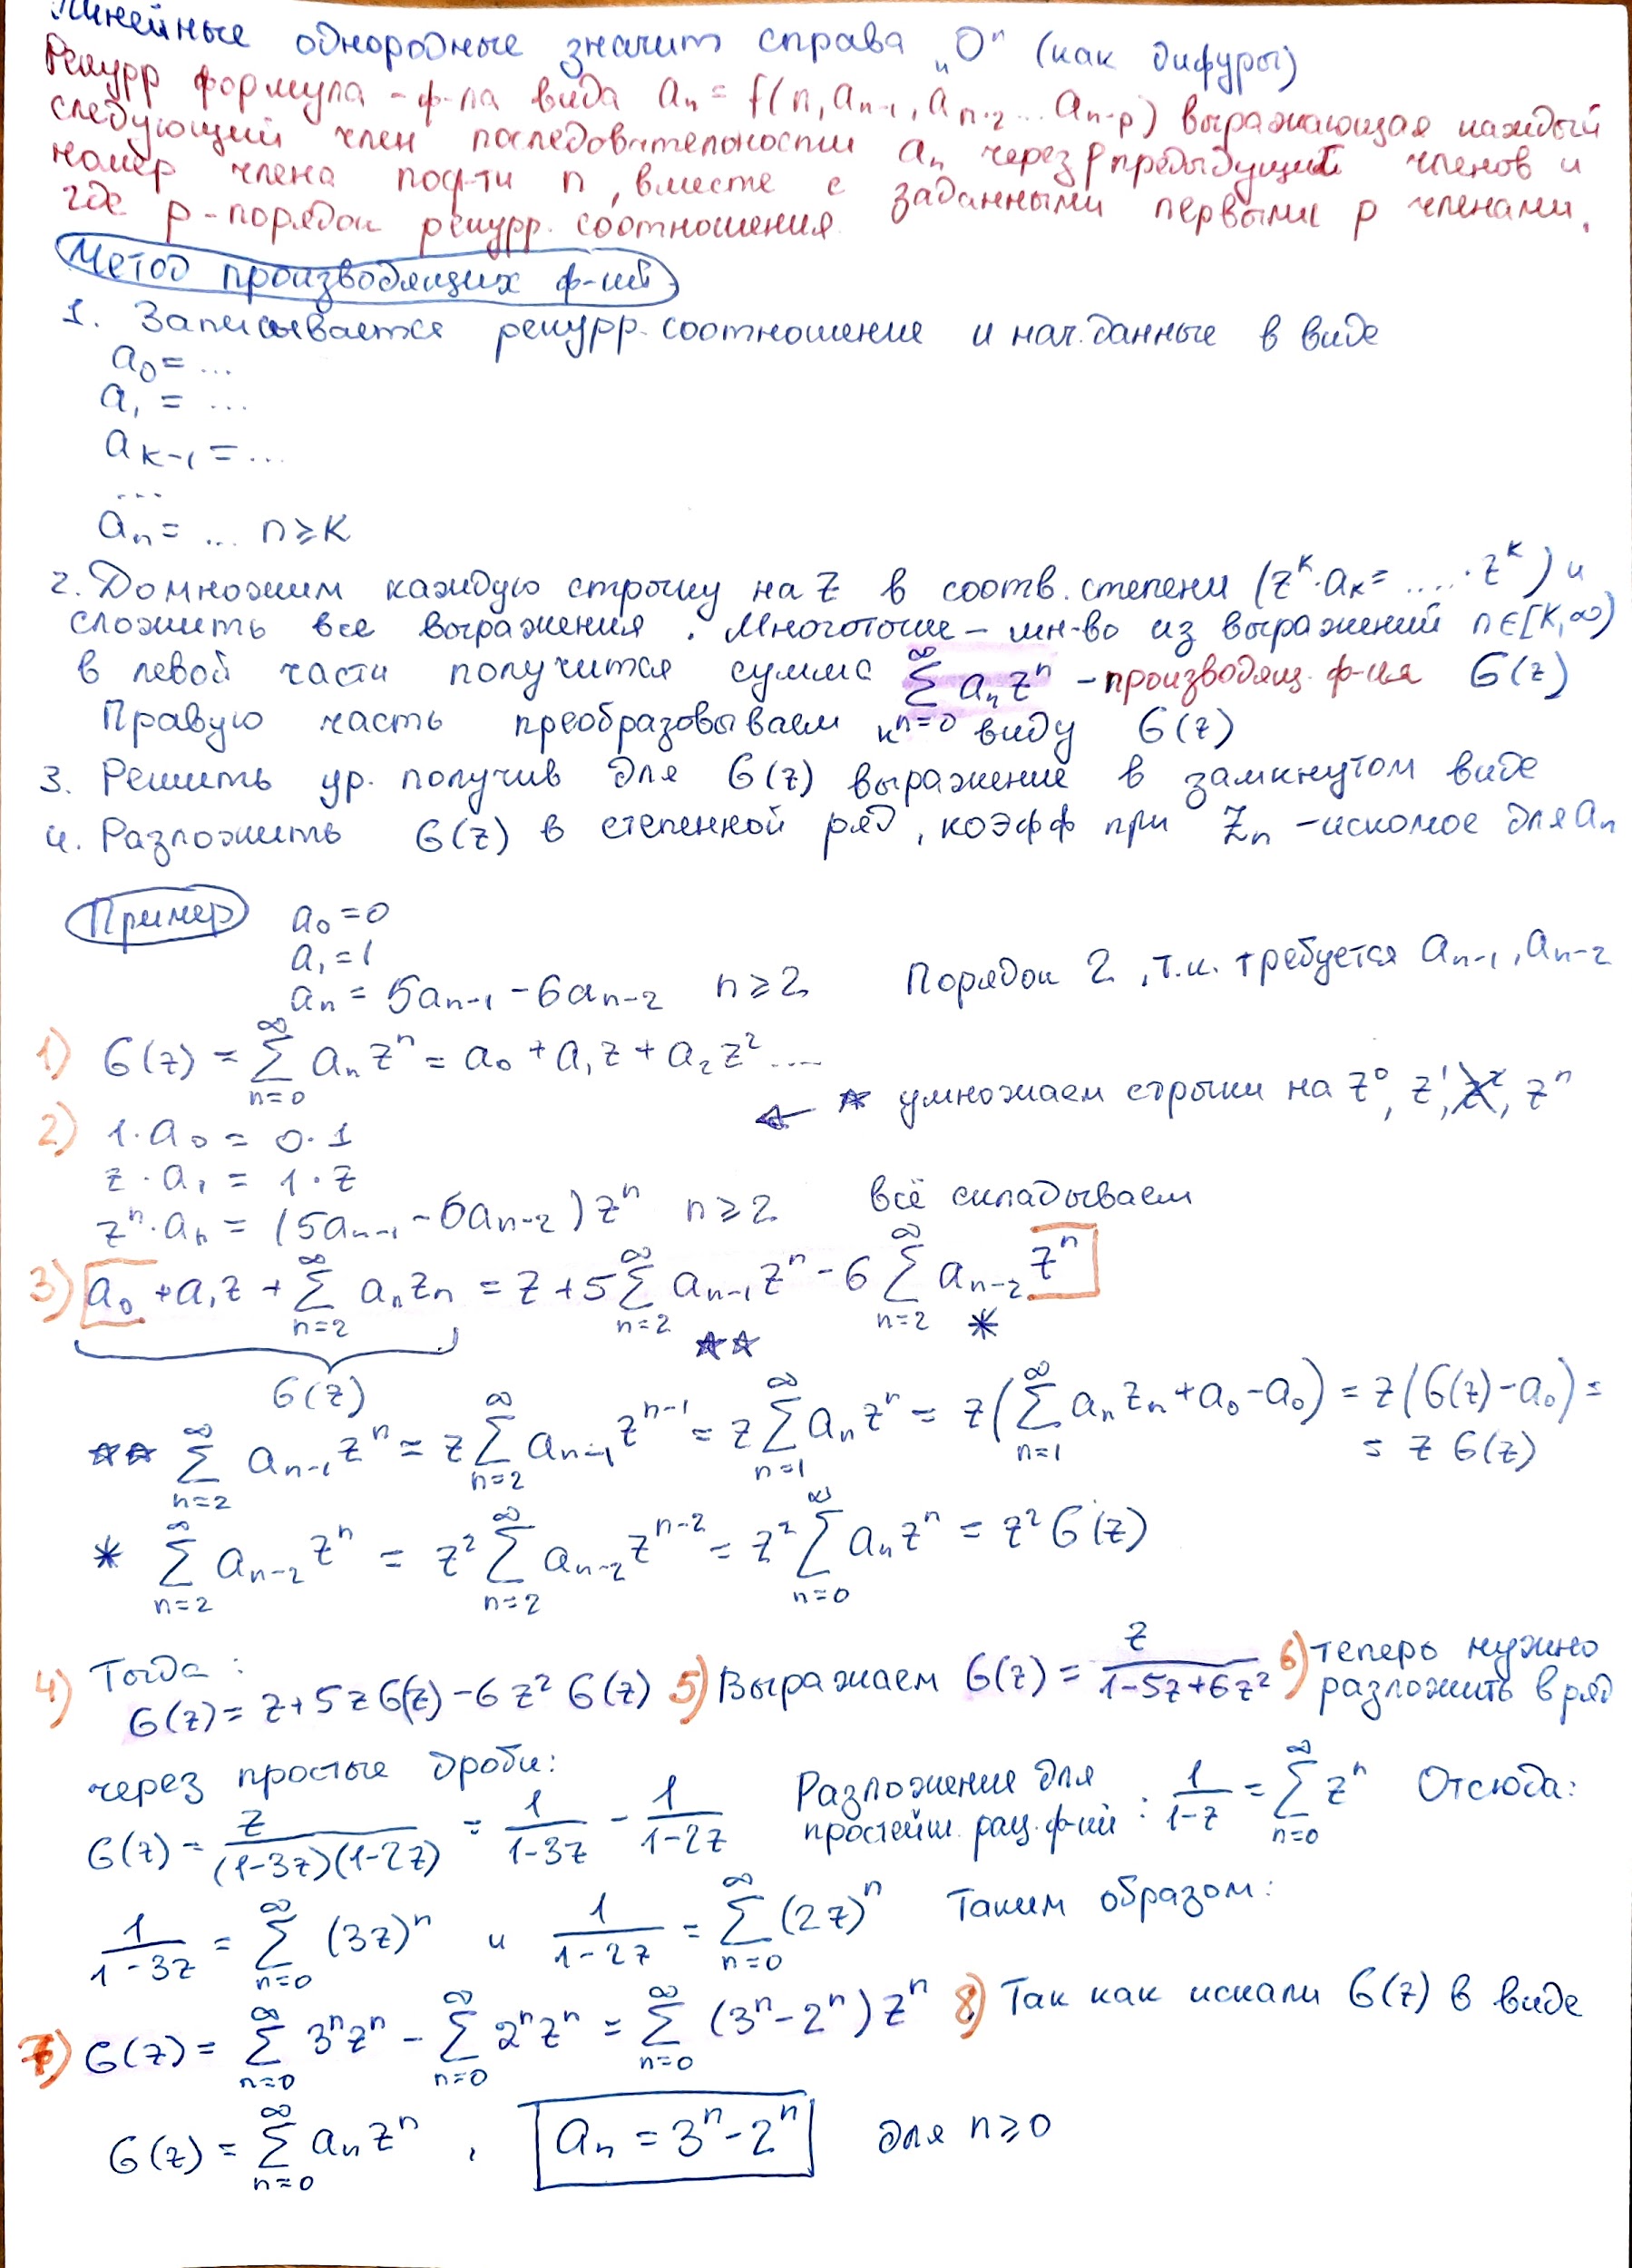 Линейные однородные значит справа „0" (как дифуры)
Рекурр формула - ф-ла вида aₙ = f(n, aₙ₋₁, aₙ₋₂ ... aₙ₋ₚ) выражающая каждый
следующий член последовательности aₙ через p предыдущих членов и
номер члена посл-ти n, вместе с заданными первыми p членами,
где p - порядок рекурр. соотношения.
Метод производящих ф-ий
1. Записывается рекурр. соотношение и нач. данные в виде
a₀ = ...
a₁ = ...
aₖ₋₁ = ...
...
aₙ = ... n ≥ k
2. Домножим каждую строчку на z в соотв. степени (zᵏ·aₖ = ....·zᵏ) и
сложить все выражения. Многоточие - мн-во из выражений n∈[k,∞)
в левой части получится сумма ∑_{n=0}^{∞} aₙzⁿ - производящ. ф-ия G(z)
Правую часть преобразовываем к виду G(z)
3. Решить ур. получив для G(z) выражение в замкнутом виде
4. Разложить G(z) в степенной ряд, коэфф при zₙ - искомое для aₙ
Пример a₀ = 0
a₁ = 1
aₙ = 5aₙ₋₁ - 6aₙ₋₂ n ≥ 2 Порядок 2, т.к. требуется aₙ₋₁, aₙ₋₂
1) G(z) = ∑_{n=0}^{∞} aₙzⁿ = a₀ + a₁z + a₂z² ....
← ☆ умножаем строчки на z⁰, z¹, z², zⁿ
2) 1·a₀ = 0·1
z·a₁ = 1·z
zⁿ·aₙ = (5aₙ₋₁ - 6aₙ₋₂)zⁿ n ≥ 2 всё складываем
3) a₀ + a₁z + ∑_{n=2}^{∞} aₙzₙ = z + 5∑_{n=2}^{∞} aₙ₋₁zⁿ - 6∑_{n=2}^{∞} aₙ₋₂zⁿ
☆☆ *
G(z)
☆☆ ∑_{n=2}^{∞} aₙ₋₁zⁿ = z∑_{n=2}^{∞} aₙ₋₁zⁿ⁻¹ = z∑_{n=1}^{∞} aₙzⁿ = z(∑_{n=1}^{∞} aₙzₙ + a₀ - a₀) = z(G(z) - a₀) =
= z G(z)
* ∑_{n=2}^{∞} aₙ₋₂zⁿ = z²∑_{n=2}^{∞} aₙ₋₂zⁿ⁻² = z²∑_{n=0}^{∞} aₙzⁿ = z²G(z)
4) Тогда: G(z) = z + 5zG(z) - 6z²G(z) 5) Выражаем G(z) = z/(1-5z+6z²) 6) теперь нужно разложить в ряд
через простые дроби: Разложение для простейш. рац. ф-ий: 1/(1-z) = ∑_{n=0}^{∞} zⁿ Отсюда:
G(z) = z/((1-3z)(1-2z)) = 1/(1-3z) - 1/(1-2z)
1/(1-3z) = ∑_{n=0}^{∞} (3z)ⁿ и 1/(1-2z) = ∑_{n=0}^{∞} (2z)ⁿ Таким образом:
7) G(z) = ∑_{n=0}^{∞} 3ⁿzⁿ - ∑_{n=0}^{∞} 2ⁿzⁿ = ∑_{n=0}^{∞} (3ⁿ - 2ⁿ)zⁿ 8) Так как искали G(z) в виде
G(z) = ∑_{n=0}^{∞} aₙzⁿ, aₙ = 3ⁿ - 2ⁿ для n ≥ 0